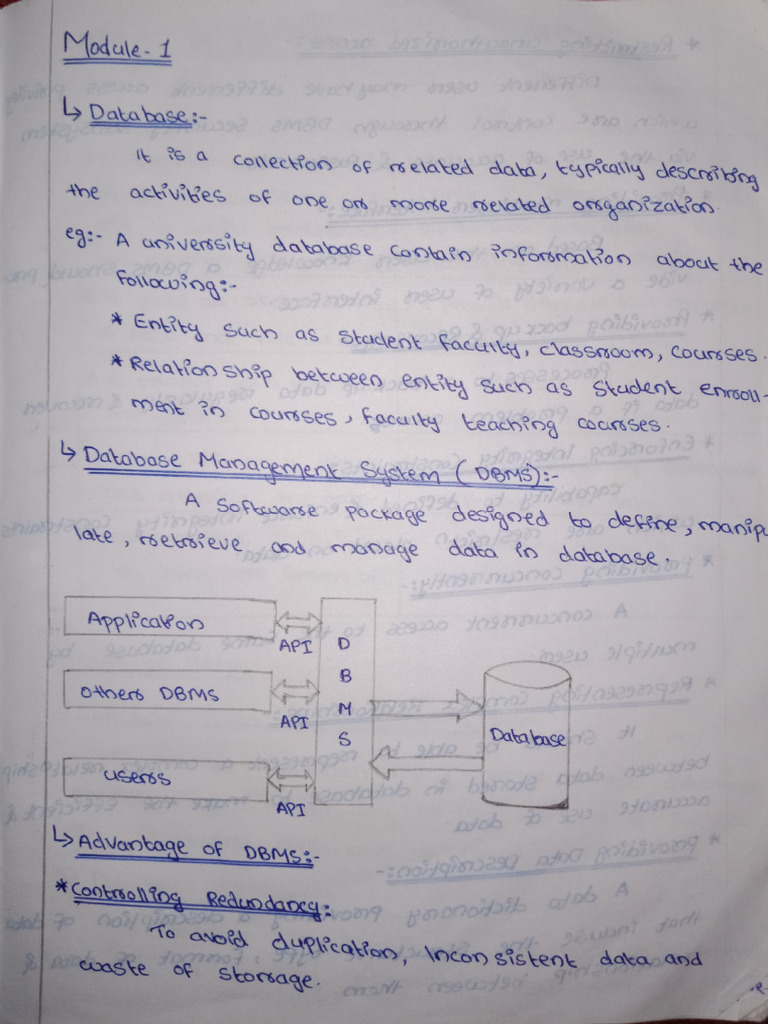 Module-1
↳ Database:-
It is a collection of related data, typically describing
the activities of one or more related organization.
eg:- A university database contain information about the
following:-
* Entity such as student faculty, classroom, courses.
* Relationship between entity such as student enroll-
ment in courses, faculty teaching courses.
↳ Database Management System (DBMS):-
A software package designed to define, manipu
late, retrieve and manage data in database.
Application
API
others DBMS
API
users
API
D
B
M
S
Database
↳ Advantage of DBMS:-
* Controlling Redundancy:
To avoid duplication, Inconsistent data and
waste of storage.